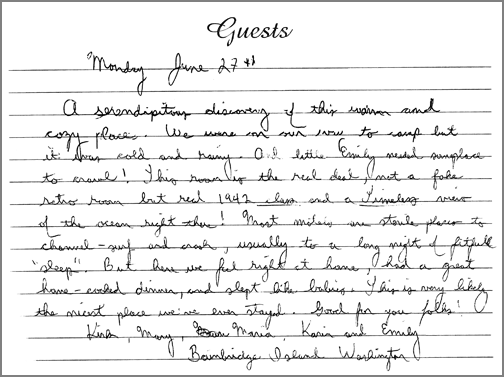 Guests
Monday June 27th
A serendipitous discovery of this warm and
cozy place. We were on our way to camp but
it was cold and rainy. And little Emily needed someplace
to crawl! This room is the real deal, not a fake
retro room but real 1942 class and a timeless view
of the ocean right there! Most motels are sterile places to
channel-surf and crash, usually to a long night of fitful
"sleep". But here we felt right at home, had a great
home-cooked dinner, and slept like babies. This is very likely
the nicest place we've ever stayed. Good for you folks!
Kirk, Mary, Maria, Karin and Emily
Bainbridge Island Washington